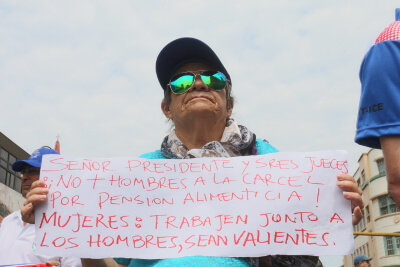 SEÑOR PRESIDENTE Y SRES JUECES
¡¡NO + HOMBRES A LA CARCEL
POR PENSION ALIMENTICIA!
MUJERES: TRABAJEN JUNTO A
LOS HOMBRES, SEAN VALIENTES.
ICE